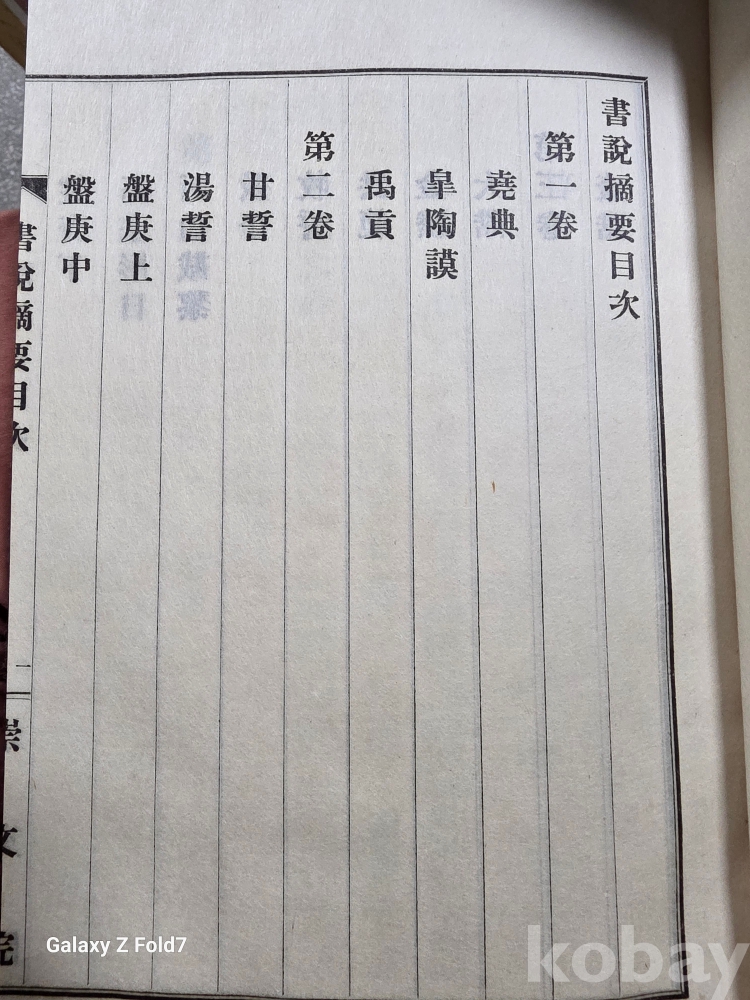 書說摘要目次
第一卷
堯典
皐陶謨
禹貢
第二卷
甘誓
湯誓
盤庚上
盤庚中
書說摘要目次
二
崇文院
Galaxy Z Fold7
kobay